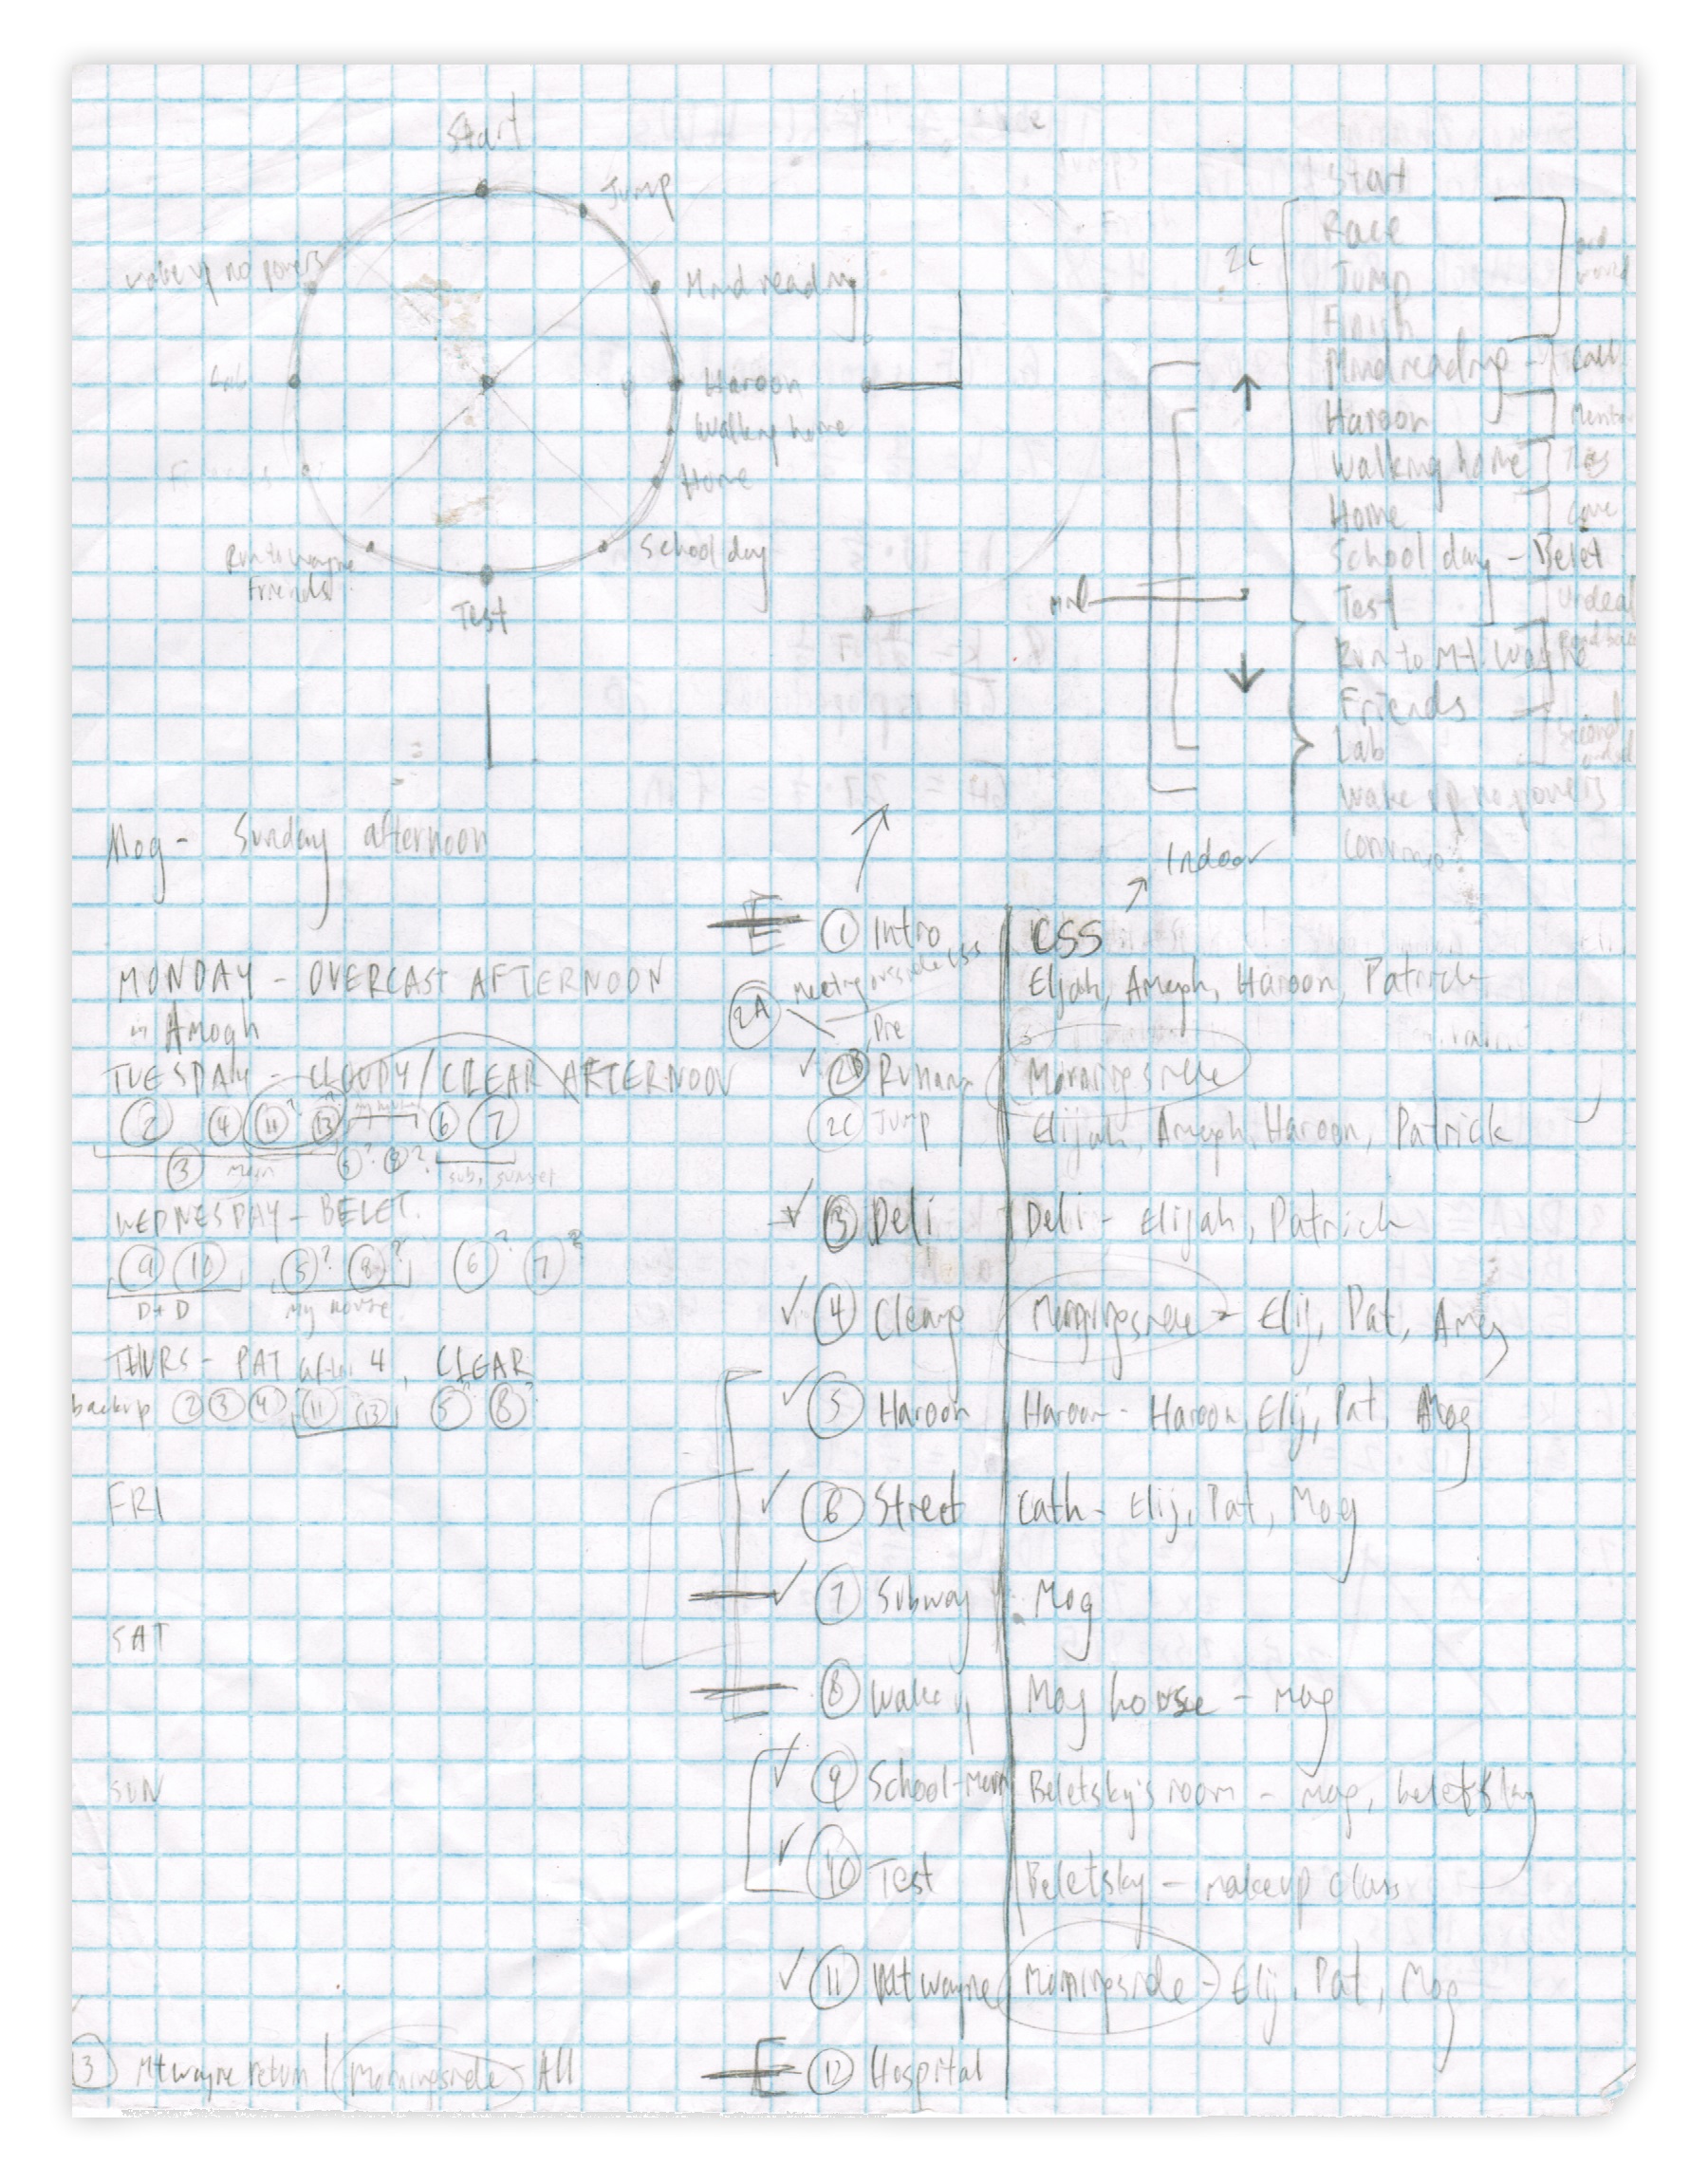 Start
Jump
Mind reading
Haroon
Walking home
Home
School day
Test
Run to wayne
Friends
Lab
wake up no powers
2C
Start
Race
Jump
Finish
Mind reading - Call
Haroon
Walking home
Home
School day - Belet
Test
Run to Mt. Wayne
Friends
Lab
Wake up no powers
Mog - Sunday afternoon
Indoor
MONDAY - OVERCAST AFTERNOON
Amogh
TUESDAY - CLOUDY/CLEAR AFTERNOON
2 4 11? 13? 6 7
my house
3 main 5? 8? sub, sunset
WEDNESDAY - BELET.
9 10 5? 8? 6? 7?
D+D my house
THURS - PAT after 4, CLEAR
backup 2 3 4 11 13 5? 8?
FRI
SAT
SUN
1 Intro CSS
Elijah, Amogh, Haroon, Patrick
2A meeting outside CSS
Pre
2B Running Morningside
2C Jump Elijah, Amogh, Haroon, Patrick
3 Deli Deli - Elijah, Patrick
4 Cleanup Morningside - Elij, Pat, Amog
5 Haroon Haroon - Haroon, Elij, Pat, Mog
6 Street Cath - Elij, Pat, Mog
7 Subway Mog
8 Wake up Mog house - Mog
9 School-Morn Beletsky's room - Mog, beletsky
10 Test Beletsky - makeup class
11 Mt wayne Morningside - Elij, Pat, Mog
12 Hospital
3 Mt wayne return | Morningside - All